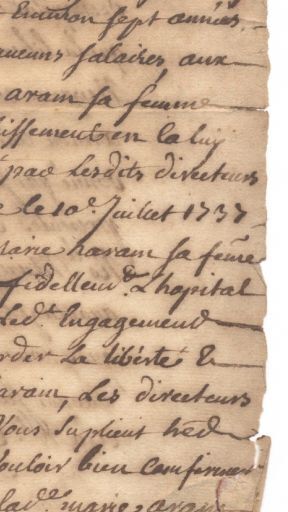 Environ sept années.
aucuns salaires, aux
aram sa femme
issement en la luy
par lesdits directeurs
le 10e. Juillet 1737
Marie haram sa feme
fidellem.t L'hopital
Led.t Engagement
order La liberté &
aram, Les directeurs
Vous Suplient
Vouloir bien Confirmer
lad.e marie aram